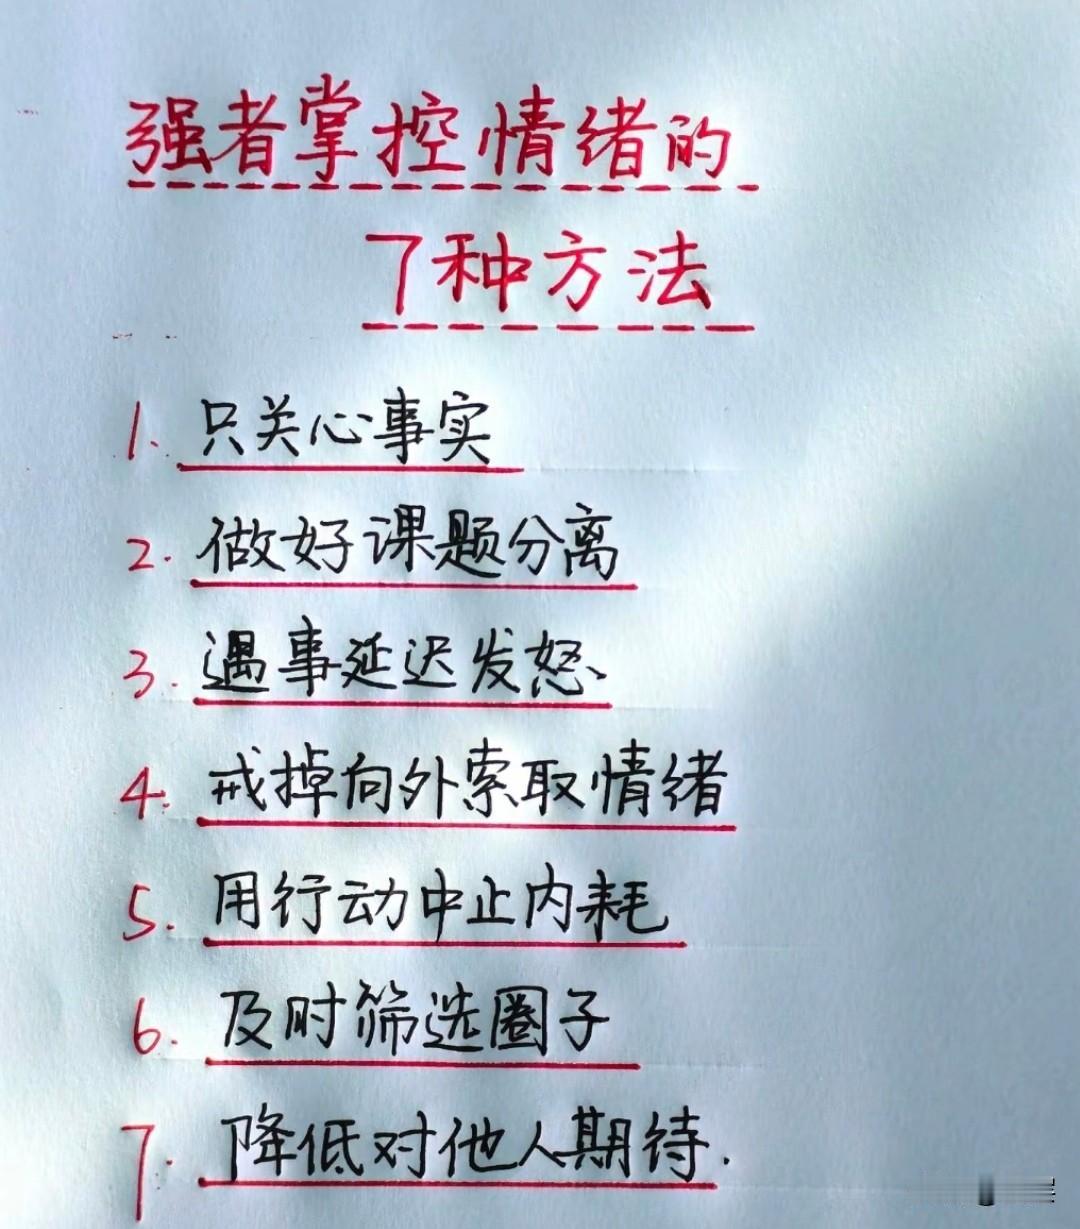 强者掌控情绪的
7种方法
1. 只关心事实
2. 做好课题分离
3. 遇事延迟发怒
4. 戒掉向外索取情绪
5. 用行动中止内耗
6. 及时筛选圈子
7. 降低对他人期待.